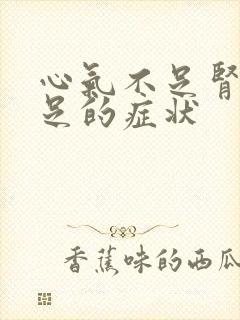 心氣不足腎
足的症状
香蕉味的西瓜